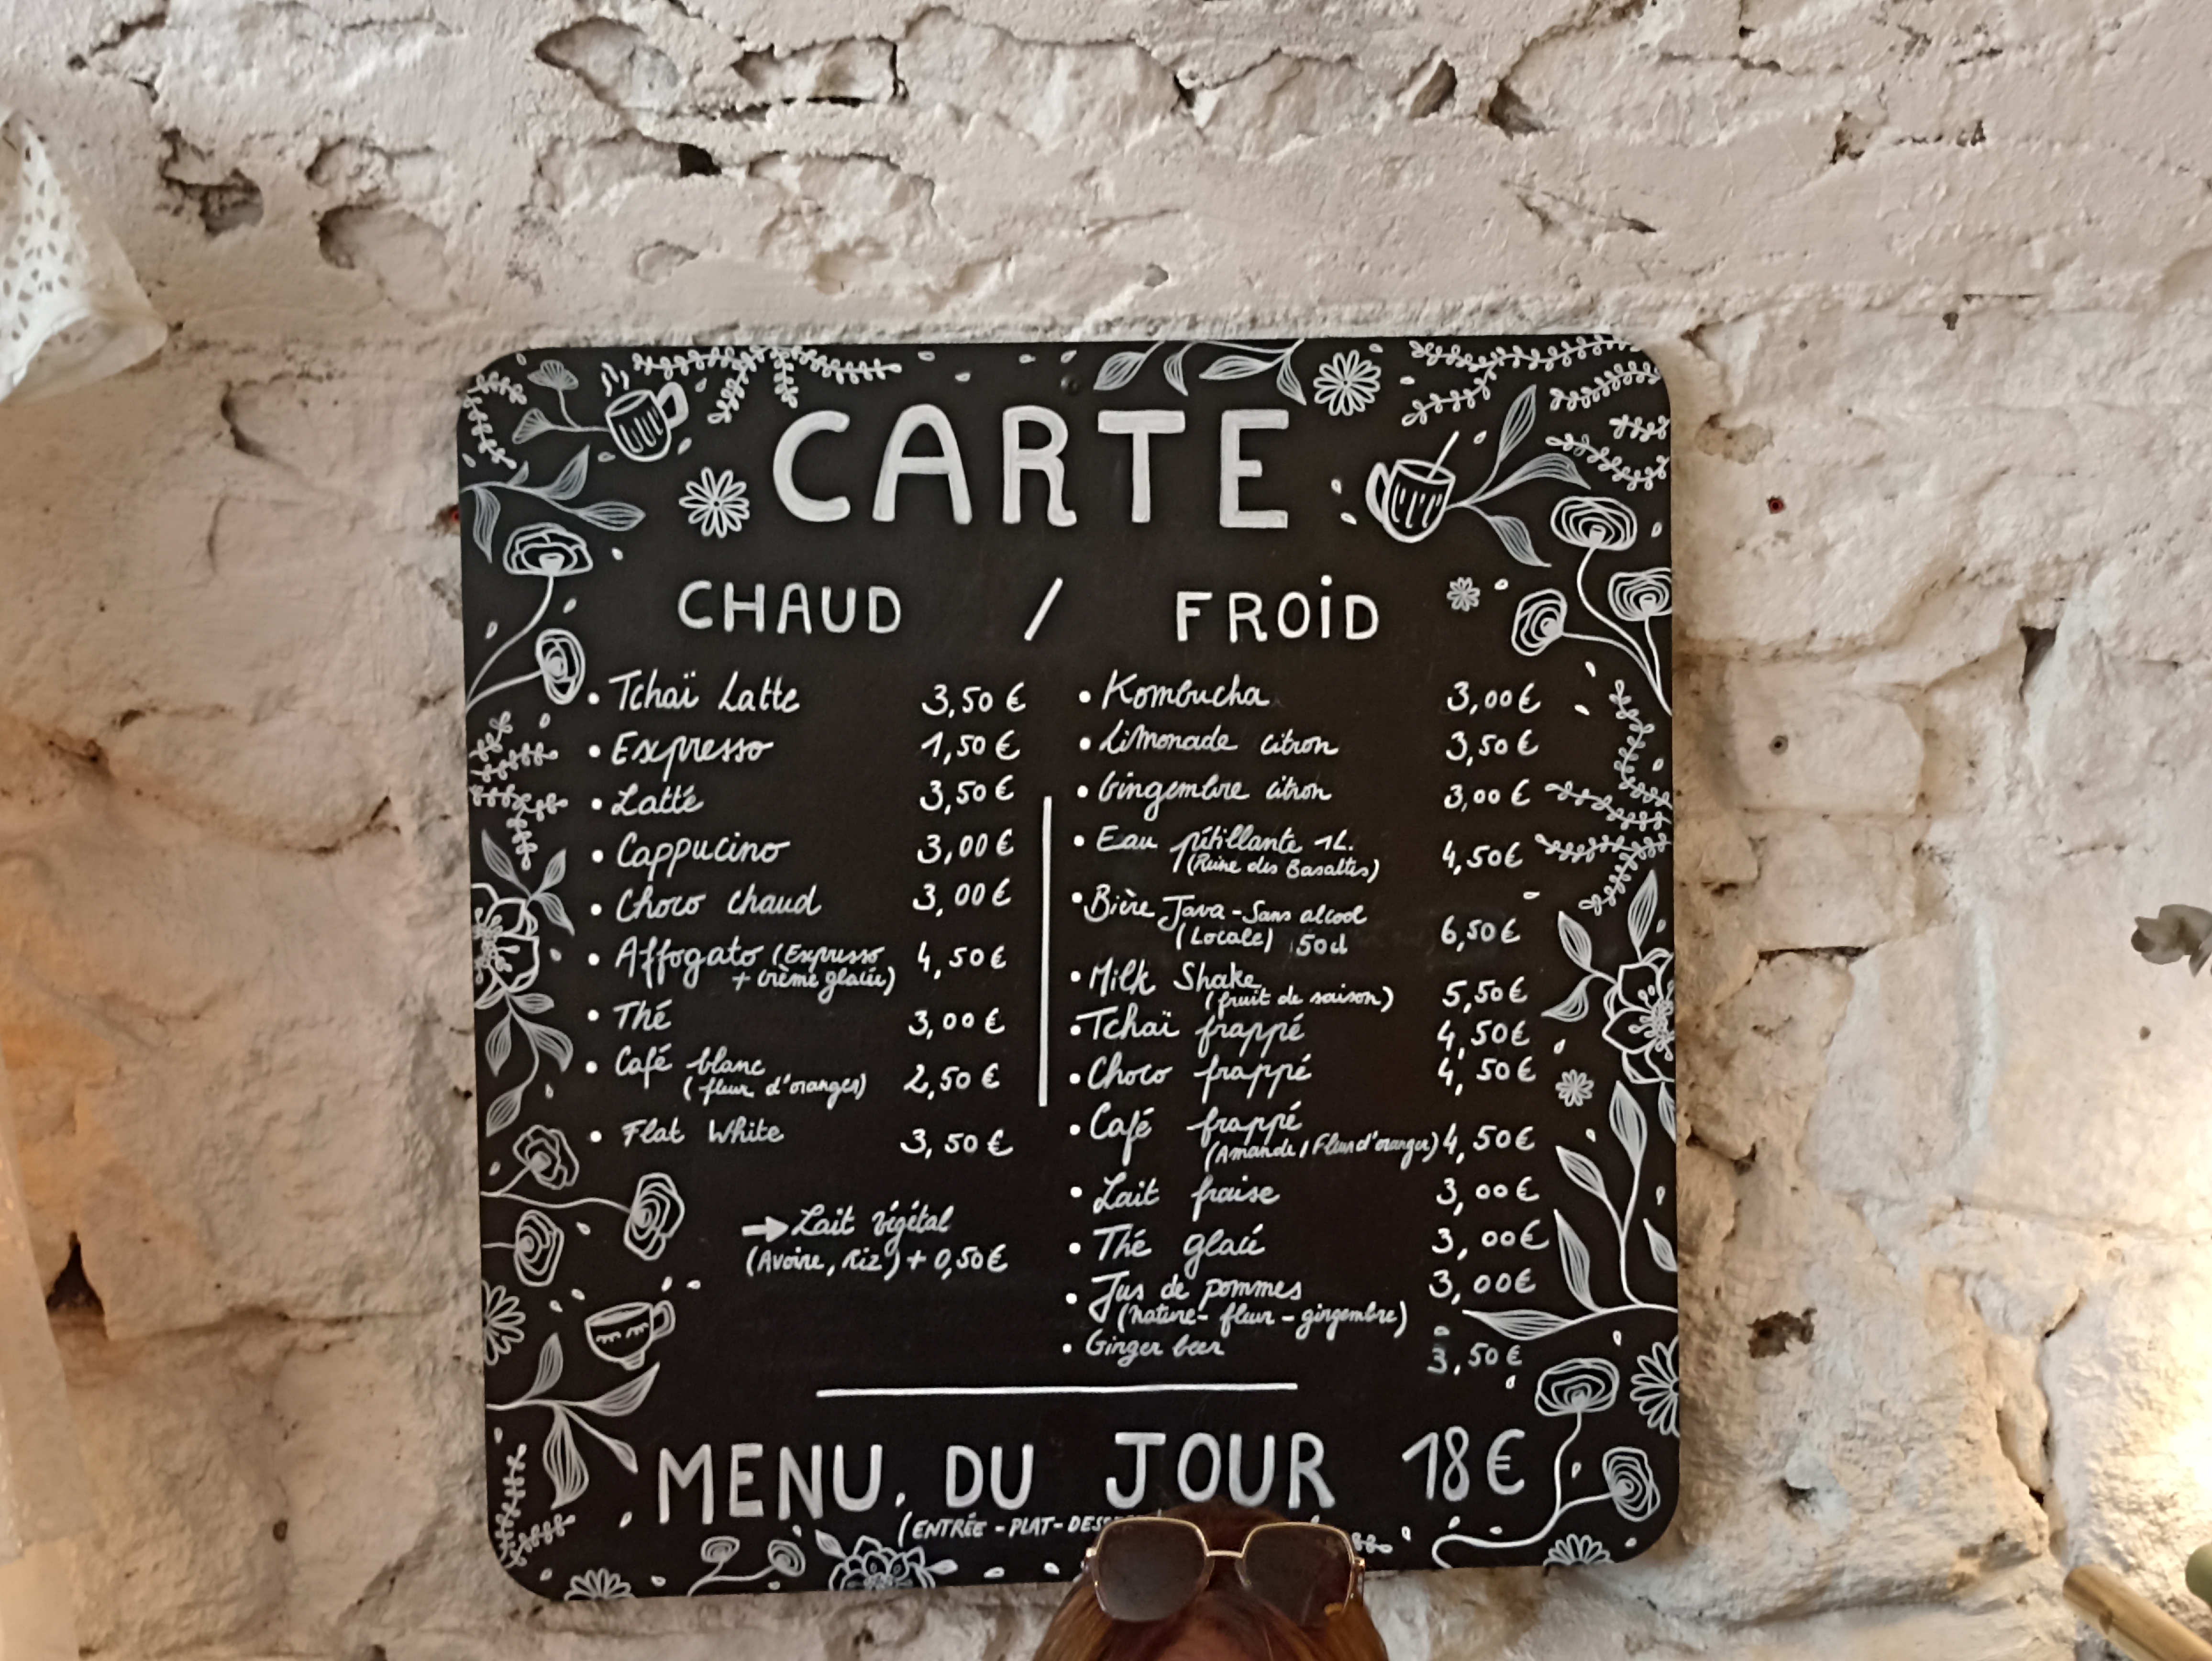 CARTE
CHAUD / FROID
• Tchaï Latte 3,50 €
• Expresso 1,50 €
• Latté 3,50 €
• Cappucino 3,00 €
• Choco chaud 3,00 €
• Affogato (Expresso 4,50 €
+ crème glacée)
• Thé 3,00 €
• Café blanc 2,50 €
(fleur d'oranger)
• Flat White 3,50 €
→ Lait végétal
(Avoine, Riz) + 0,50 €
• Kombucha 3,00 €
• Limonade citron 3,50 €
• Gingembre citron 3,00 €
• Eau pétillante 1L. 4,50 €
(Reine des Basaltes)
• Bière Java - Sans alcool 6,50 €
(Locale) 50cl
• Milk Shake 5,50 €
(fruit de saison)
• Tchaï frappé 4,50 €
• Choco frappé 4,50 €
• Café frappé 4,50 €
(Amande / Fleur d'oranger)
• Lait fraise 3,00 €
• Thé glacé 3,00 €
• Jus de pommes 3,00 €
(nature - fleur - gingembre)
• Ginger beer 3,50 €
MENU DU JOUR 18 €
(ENTRÉE - PLAT -